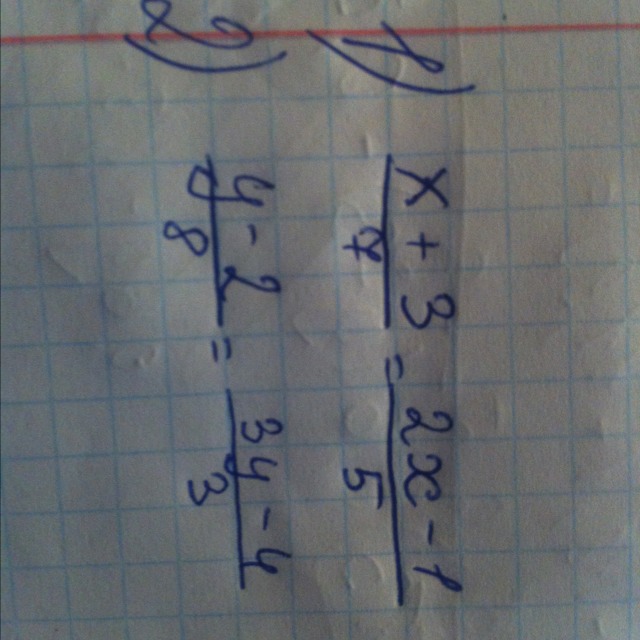 1) (x + 3)/7 = (2x - 1)/5
2) (y - 2)/8 = (3y - 4)/3